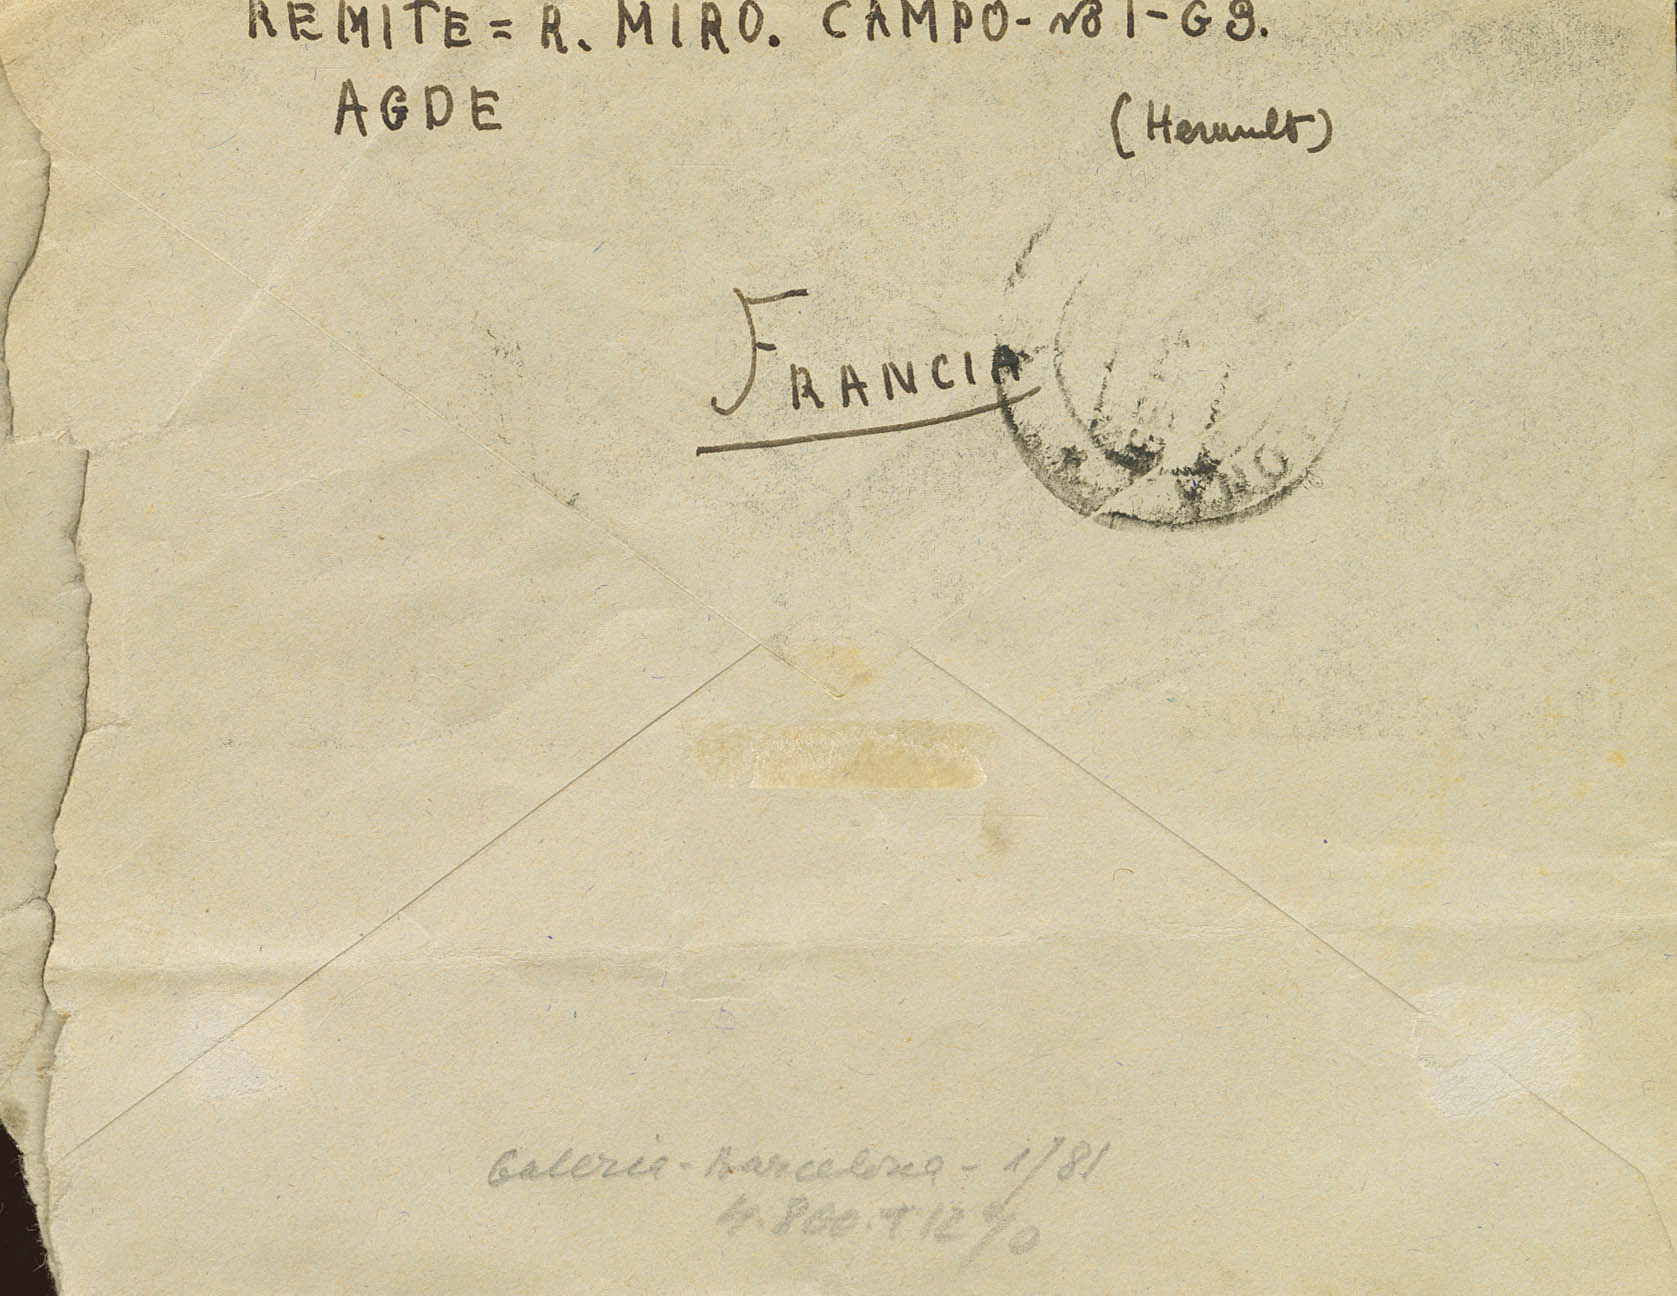 REMITE = R. MIRO. CAMPO - Nº 1 - G 9.
AGDE (Herault)
FRANCIA
Galeria - Barcelona - 1/81
4.800.+ 12 %